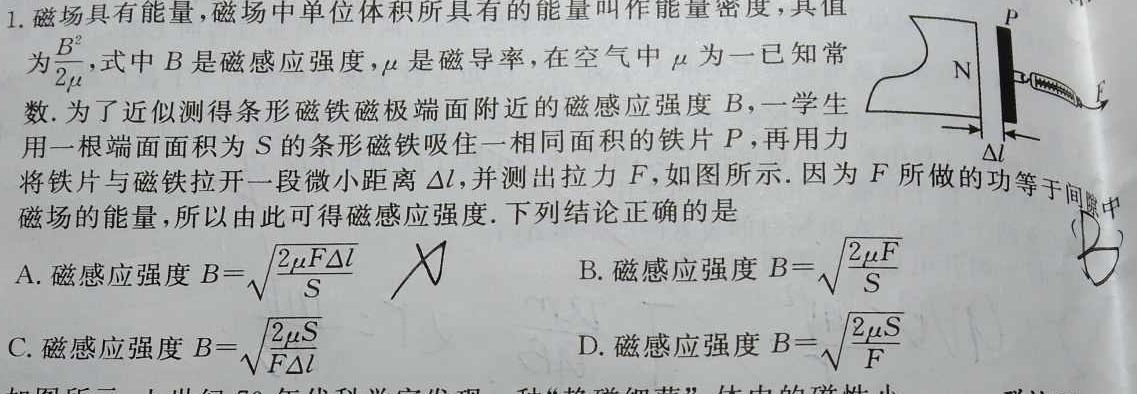 1. 磁场具有能量,磁场中单位体积所具有的能量叫作能量密度,其值
为B²/2μ,式中 B 是磁感应强度,μ 是磁导率,在空气中 μ 为一已知常
数. 为了近似测得条形磁铁磁极端面附近的磁感应强度 B,一学生
用一根端面面积为 S 的条形磁铁吸住一相同面积的铁片 P,再用力
将铁片与磁铁拉开一段微小距离 Δl,并测出拉力 F,如图所示. 因为 F 所做的功等于间隙中
磁场的能量,所以由此可得磁感应强度. 下列结论正确的是
A. 磁感应强度 B=√(2μFΔl/S)
B. 磁感应强度 B=√(2μF/S)
C. 磁感应强度 B=√(2μS/FΔl)
D. 磁感应强度 B=√(2μS/F)
P
N
F
Δl
B